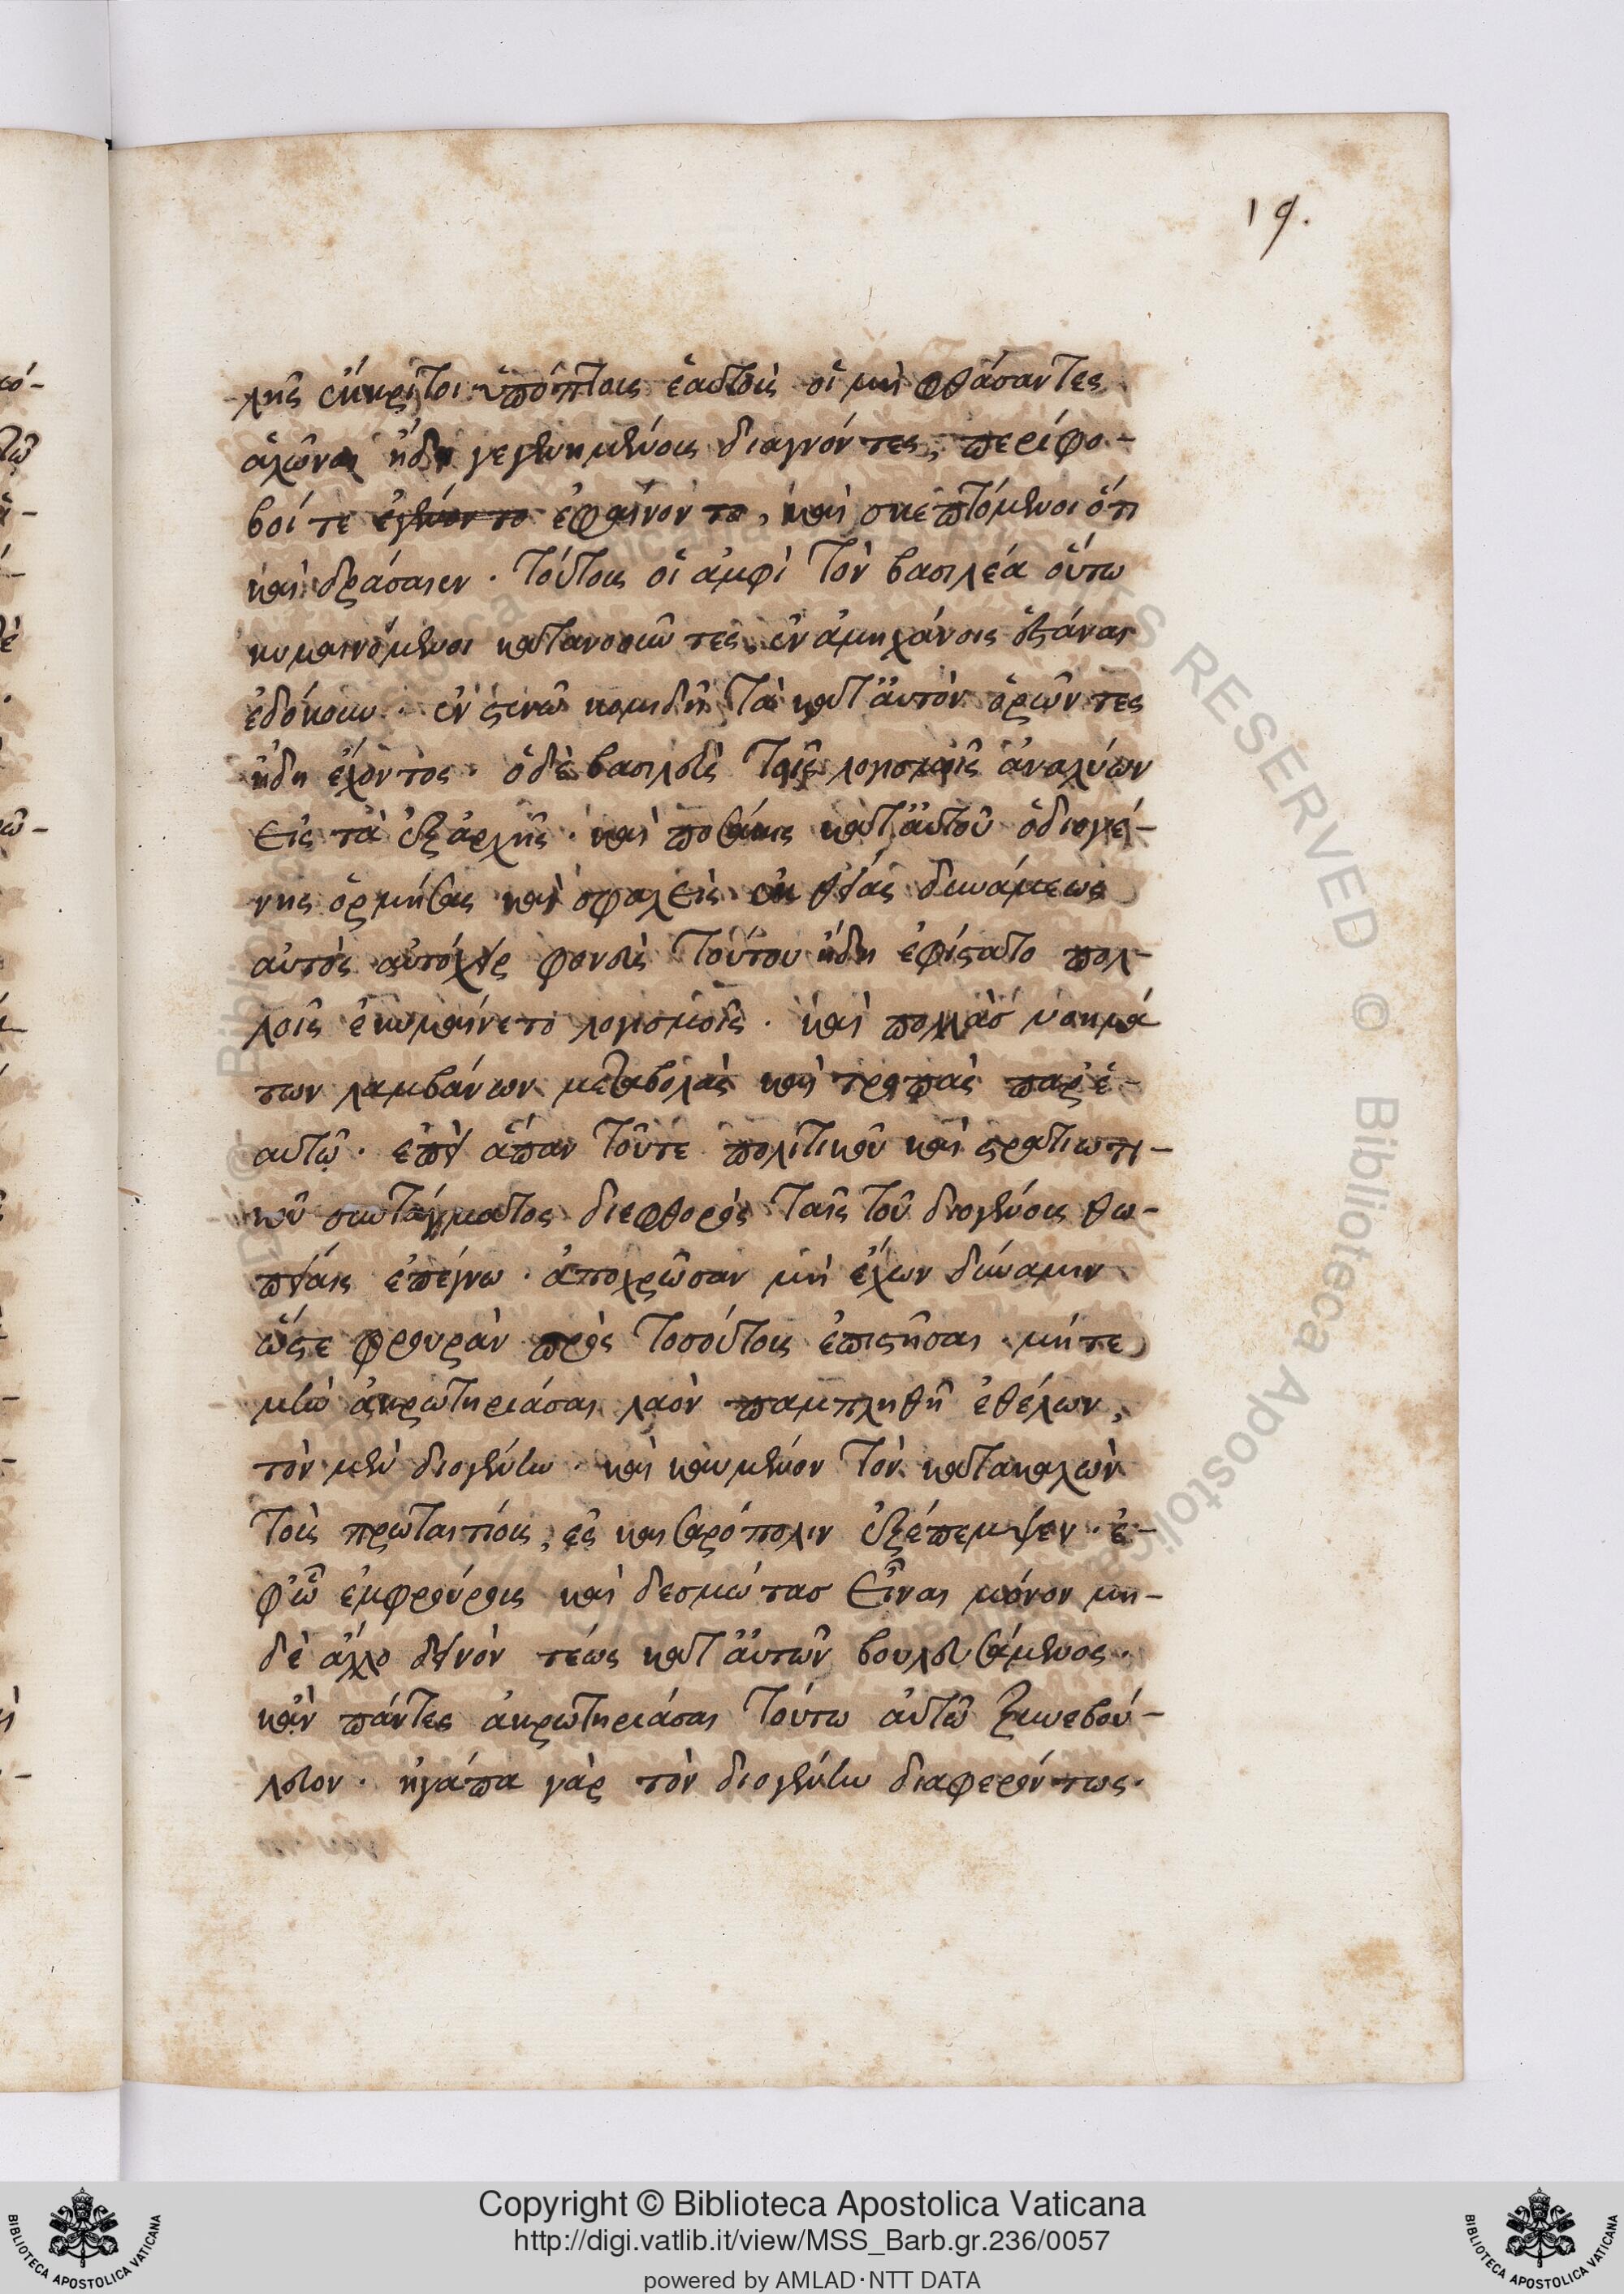 19.
λῆς ἔκκριτοι ὑπόπτους ἑαυτοὺς οἱ μὴ φθάσαντες
ἁλῶναι ἤδη γεγενημένους διαγνόντες, περίφο-
βοί τε ἐγένοντο ἐφαίνοντο, καὶ σκεπτόμενοι ὅτι
καὶ δράσαιεν. τούτους οἱ ἀμφὶ τὸν βασιλέα οὕτω
κυμαινόμενοι κατανοοῦντες ἐν ἀμηχάνοις
ἐδόκουν. ἐν στενῷ κομιδῇ τὰ κατ' αὐτὸν ὁρῶντες
ἤδη ἔχοντος. ὁ δὲ βασιλεὺς τοῖς λογισμοῖς ἀναλύων
εἰς τὰ ἐξ ἀρχῆς. καὶ ποσάκις κατ' αὐτοῦ ὁ διογέ-
νης ὁρμήσας καὶ σφαλεὶς ἐκ θείας δυνάμεως
αὐτὸς αὐτόχειρ φονεὺς τούτου ἤδη ἐφίστατο πολ-
λοῖς ἐκυμαίνετο λογισμοῖς. καὶ πολλὰσ νοημά
των λαμβάνων μεταβολὰς καὶ τροπὰς παρ' ἑ-
αυτῷ. ἐπεὶ ἅπαν τοῦτε πολιτικοῦ καὶ στρατιωτι-
κοῦ συντάγματος διεφθορὸς ταῖς τοῦ διογένους θω-
πείαις ἐπέγνω. ἀποχρῶσαν μὴ ἔχων δύναμιν
ὥστε φρουρὰν πρὸς τοσούτους ἐπιστῆσαι. μήτε
μὴν ἀκρωτηριάσαι λαὸν παμπληθῆ ἐθέλων,
τὸν μὲν διογένην. καὶ καυμένον τὸν κατακαλὼν
τοὺς πρωταιτίους, ἐς καισαρόπολιν ἐξέπεμψεν. ἐ-
φ' ᾧ ἐμφρούρους καὶ δεσμώτασ εἶναι μόνον μη-
δὲ ἄλλο δεινὸν τέως κατ' αὐτῶν βουλευσάμενος.
κἂν πάντες ἀκρωτηριάσαι τούτω αὐτῷ ξυνεβού-
λευον. ἠγάπα γὰρ τὸν διογένην διαφερόντως.
Copyright © Biblioteca Apostolica Vaticana
http://digi.vatlib.it/view/MSS_Barb.gr.236/0057
powered by AMLAD·NTT DATA
BIBLIOTECA APOSTOLICA VATICANA
BIBLIOTECA APOSTOLICA VATICANA